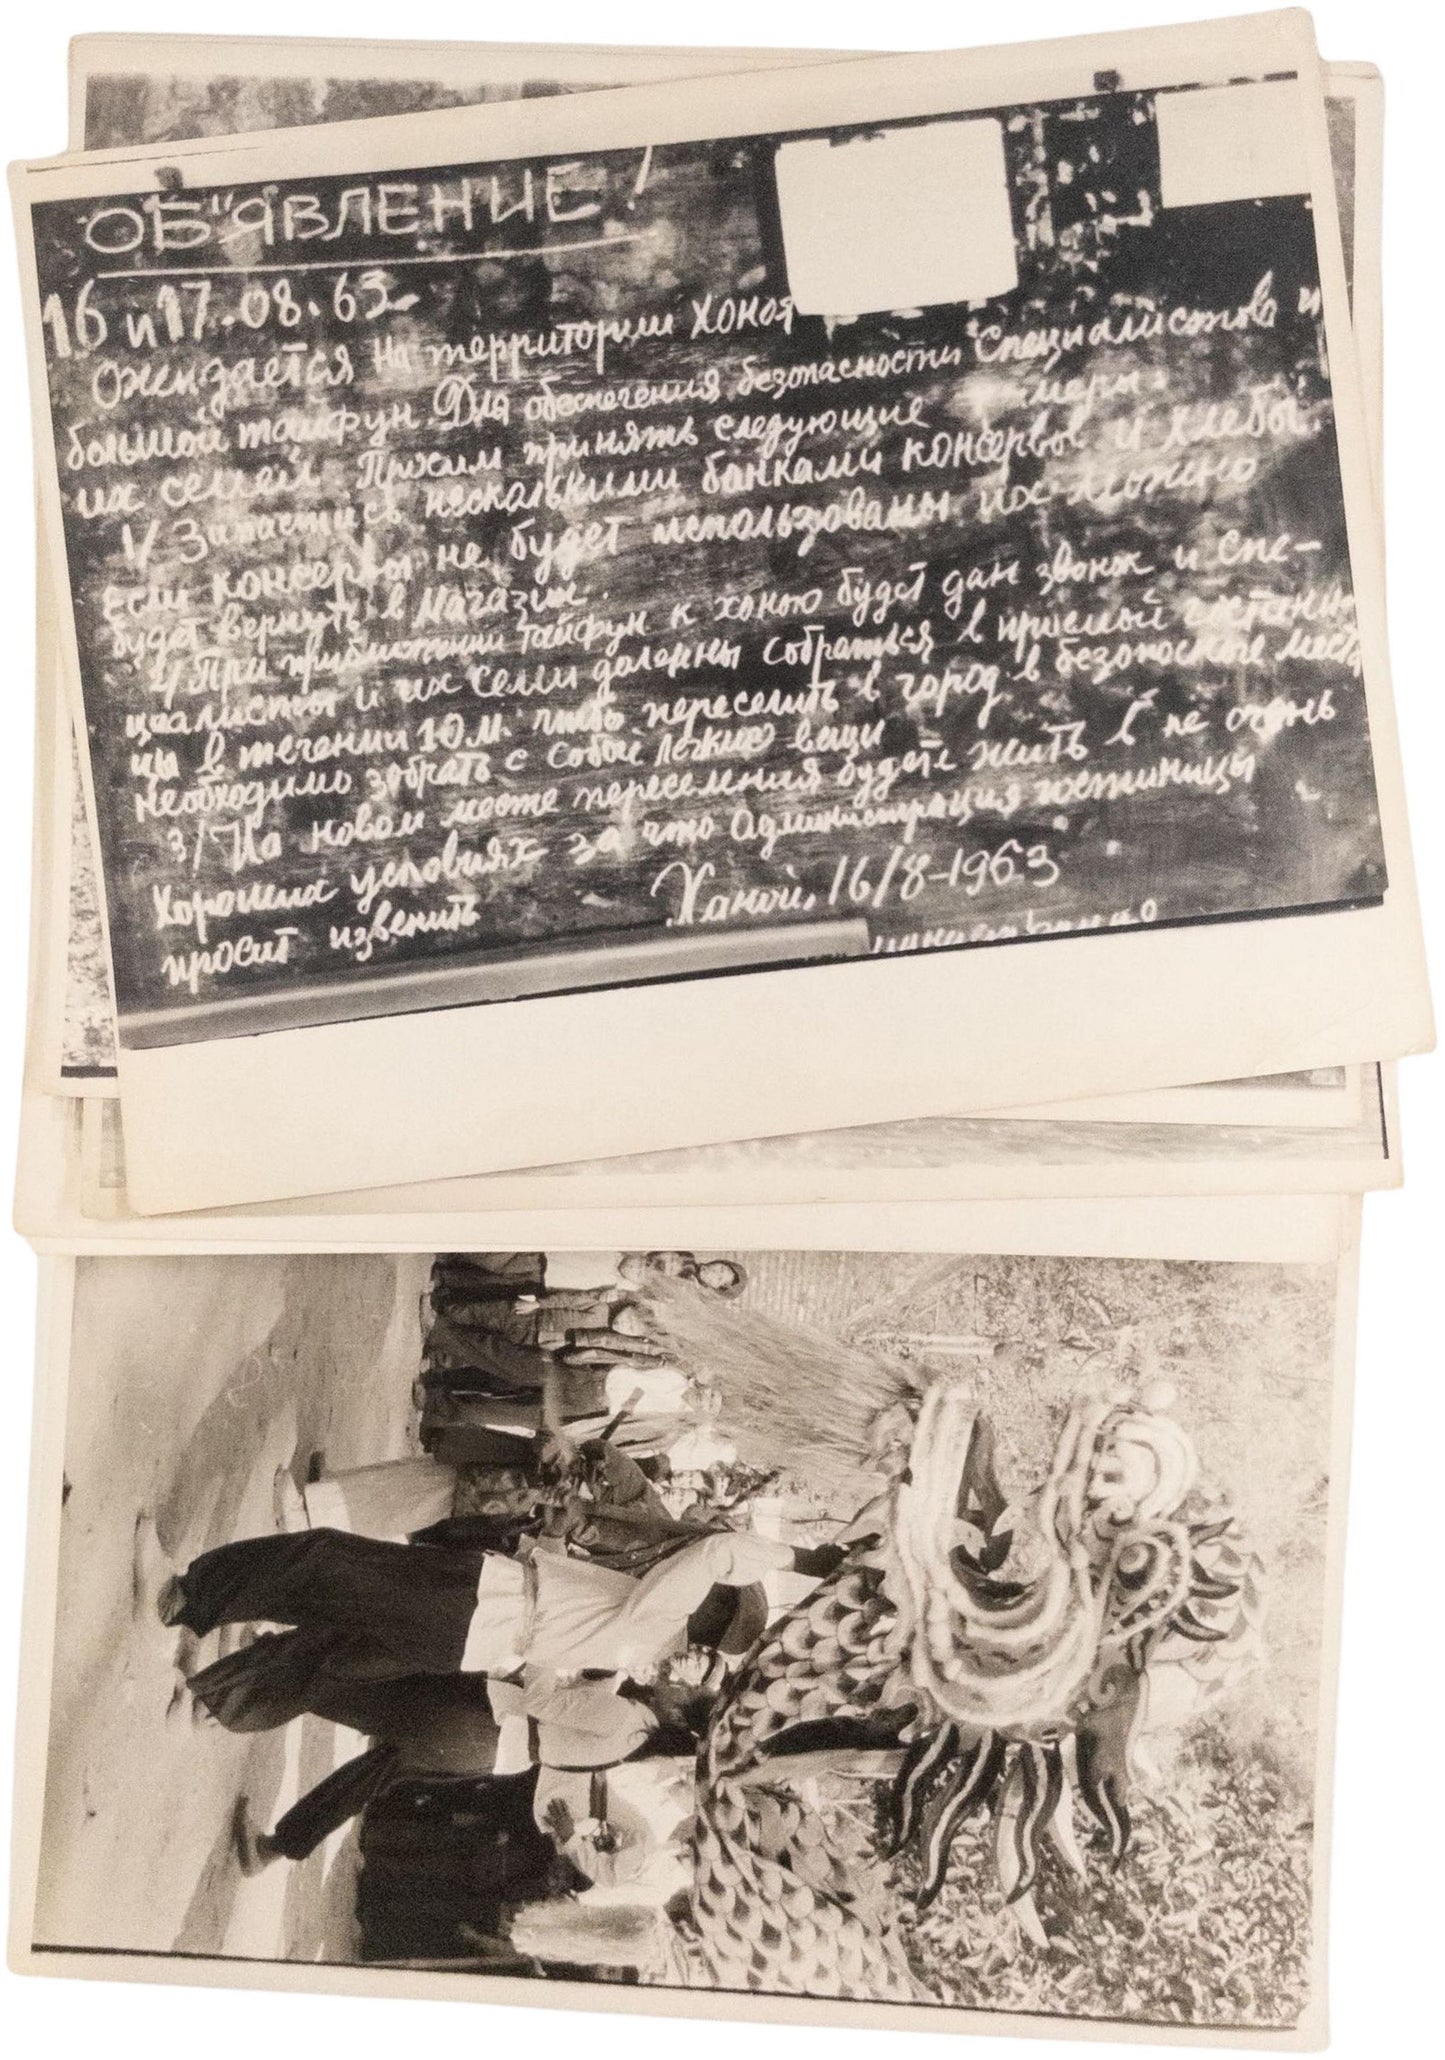 ОБ"ЯВЛЕНИЕ!
16 и 17.08.63
Ожидается на территории Ханоя
большой тайфун. Для обеспечения безопасности специалистов и
их семей Просим принять следующие меры:
1/ Запастись несколькими банками консервов и хлебы.
Если консервы не будет использованы их можно
будет вернуть в магазин.
2/ При приближении тайфун к ханою будет дан звонок и спе-
циалисты и их семи должны собраться в приемой гостини-
цы в течении 10 м. чтобы переселить в город в безопасное место
необходимо забрать с собой легкие вещи
3/ На новом месте переселения будете жить в не очень
хороших условиях за что Администрация гостиницы
просит извенить
Ханой, 16/8-1963